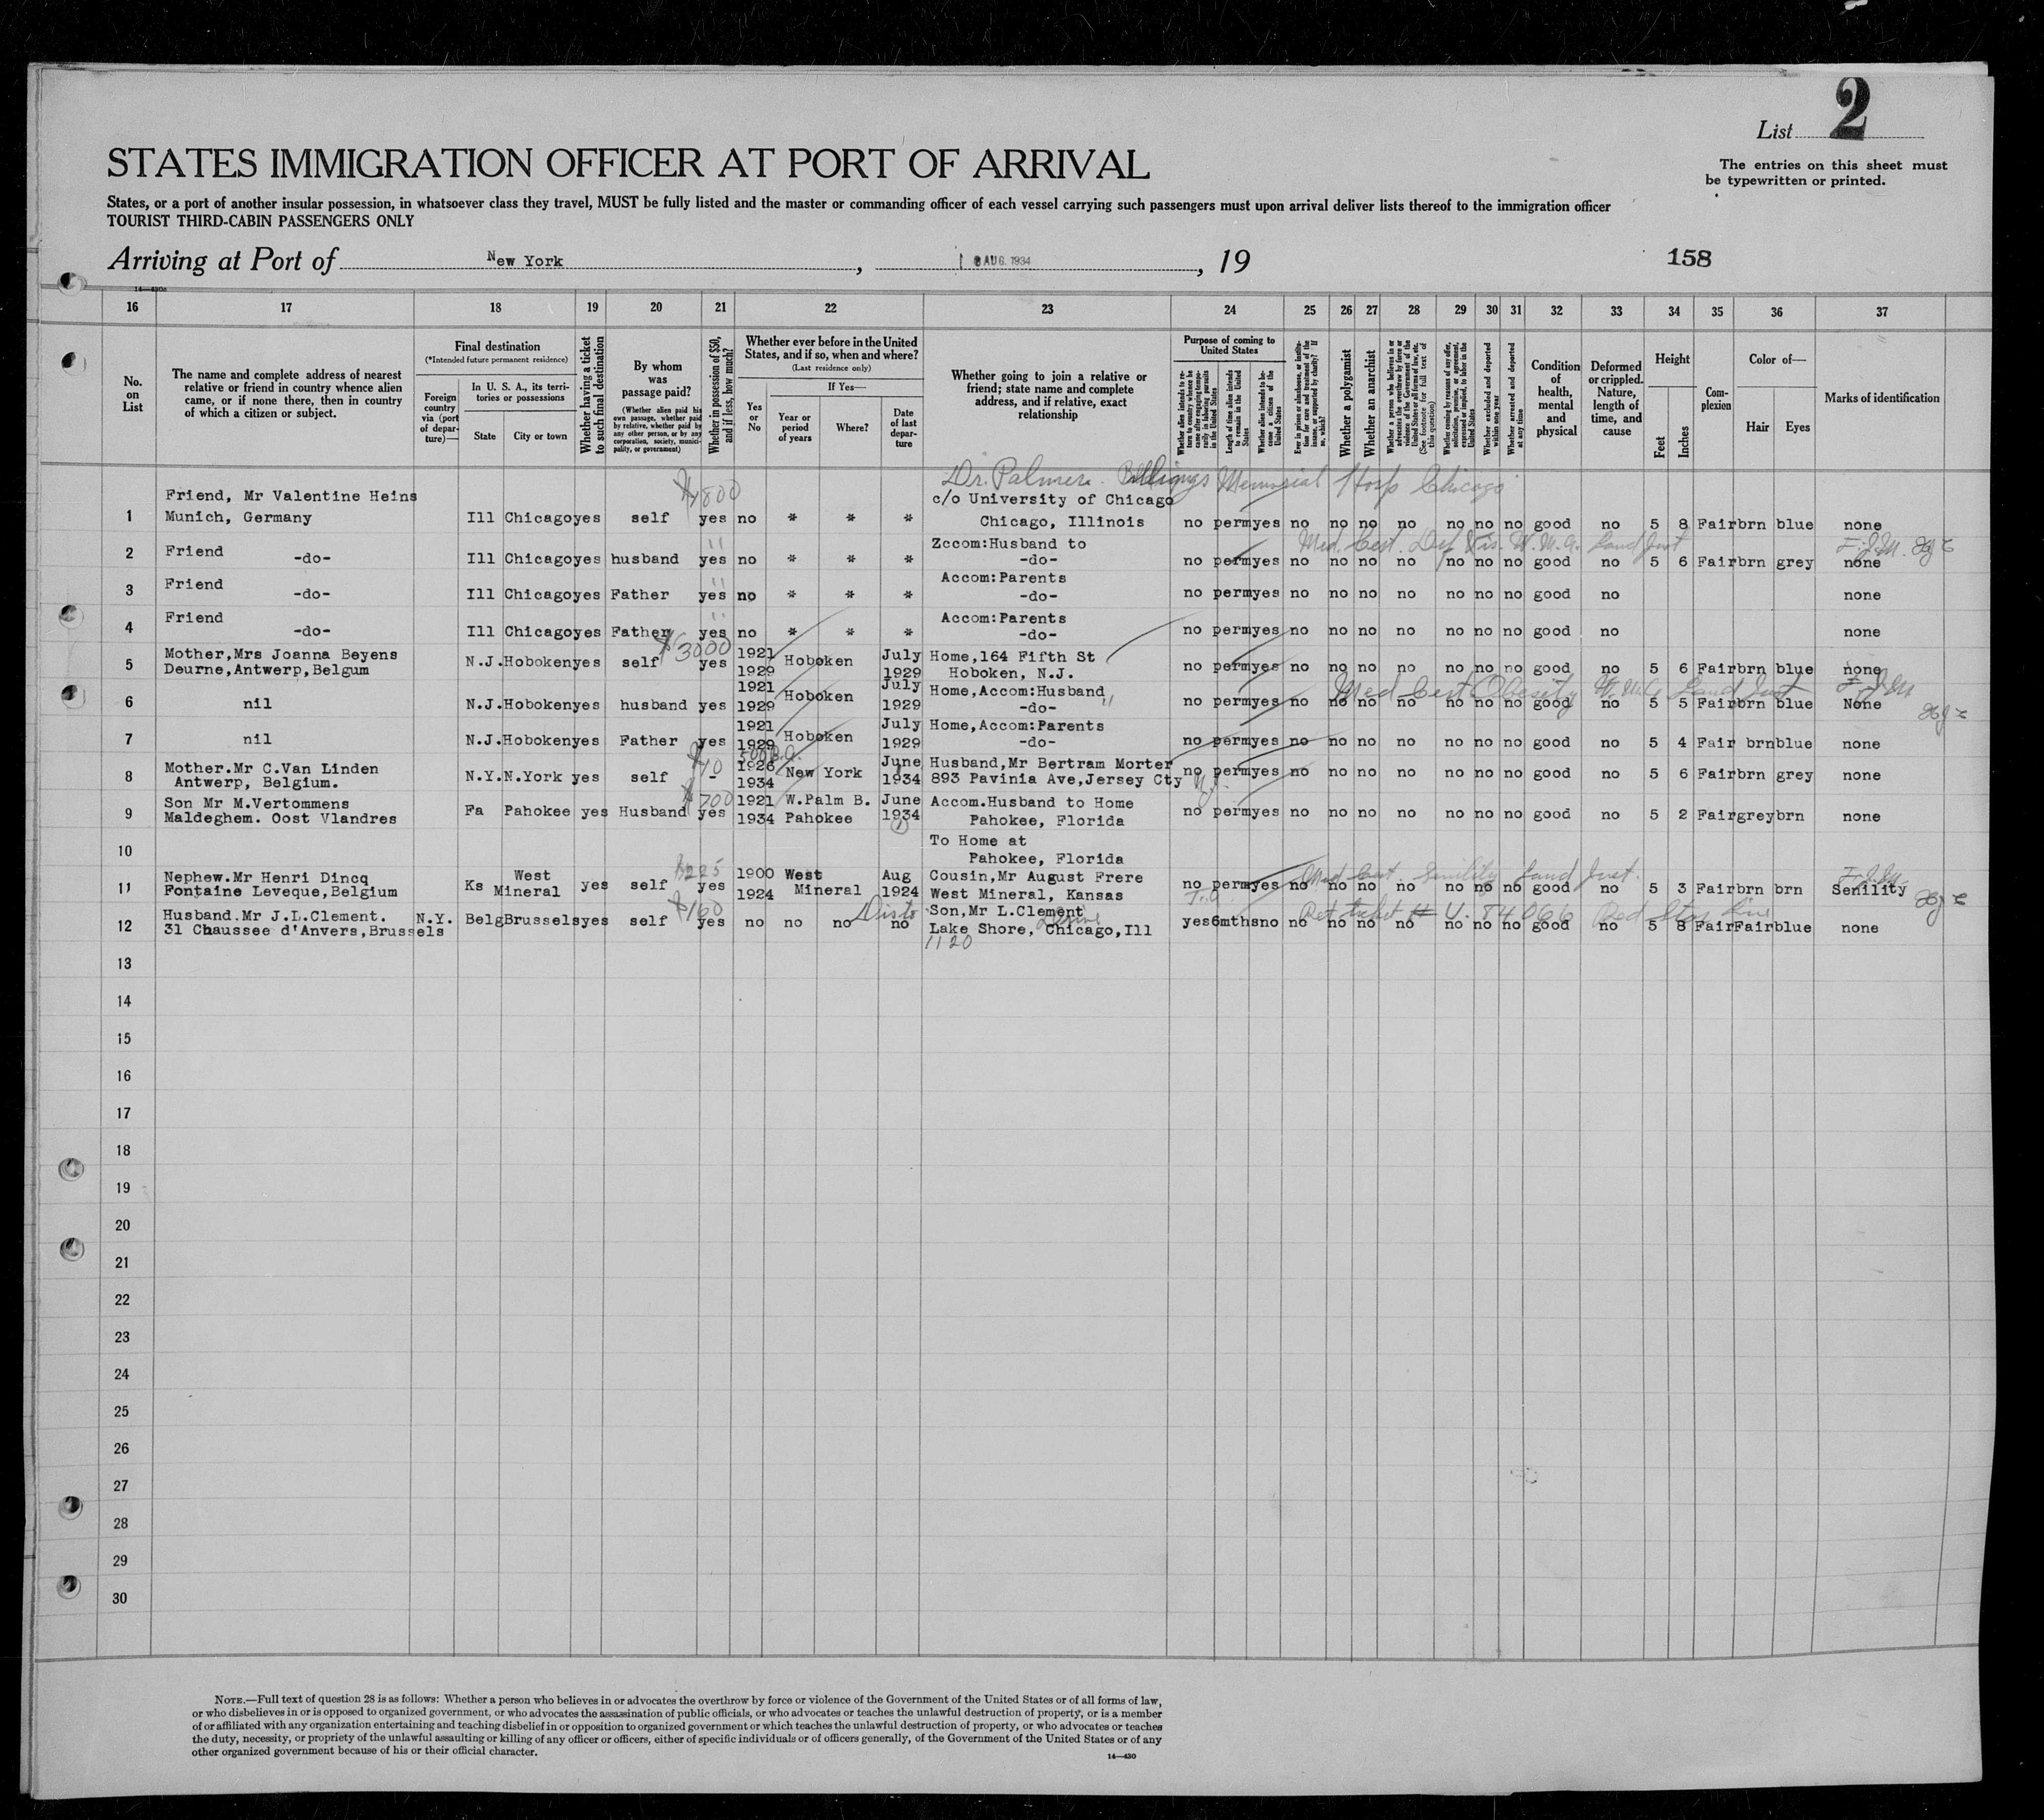 2
List
STATES IMMIGRATION OFFICER AT PORT OF ARRIVAL
The entries on this sheet must
be typewritten or printed.
States, or a port of another insular possession, in whatsoever class they travel, MUST be fully listed and the master or commanding officer of each vessel carrying such passengers must upon arrival deliver lists thereof to the immigration officer
TOURIST THIRD-CABIN PASSENGERS ONLY
Arriving at Port of New York, AUG. 1934, 19
158
16 17 18 19 20 21 22 23 24 25 26 27 28 29 30 31 32 33 34 35 36 37
No. on List
The name and complete address of nearest relative or friend in country whence alien came, or if none there, then in country of which a citizen or subject.
Final destination
(*Intended future permanent residence)
Foreign country via (port of departure)—
In U. S. A., its territories or possessions
State City or town
Whether having a ticket to such final destination
By whom was passage paid?
(Whether alien paid his own passage, whether paid by relative, whether paid by any other person, or by any corporation, society, municipality, or government)
Whether in possession of $50, and if less, how much?
Whether ever before in the United States, and if so, when and where?
(Last residence only)
Yes or No
If Yes—
Year or period of years
Where?
Date of last departure
Whether going to join a relative or friend; state name and complete address, and if relative, exact relationship
Purpose of coming to United States
Whether alien intends to return to country whence he came after engaging temporarily in laboring pursuits in the United States
Length of time alien intends to remain in the United States
Whether alien intends to become a citizen of the United States
Ever in prison or almshouse, or institution for care and treatment of the insane, or supported by charity? If so, which?
Whether a polygamist
Whether an anarchist
Whether a person who believes in or advocates the overthrow by force or violence of the Government of the United States or all forms of law, etc. (See footnote for full text of this question)
Whether coming by reasons of any offer, solicitation, promise, or agreement, expressed or implied, to labor in the United States
Whether excluded and deported within one year
Whether arrested and deported at any time
Condition of health, mental and physical
Deformed or crippled. Nature, length of time, and cause
Height
Feet Inches
Complexion
Color of—
Hair Eyes
Marks of identification
Dr. Palmer. Billings Memorial Hosp Chicago
$1800
Friend, Mr Valentine Heins c/o University of Chicago
1 Munich, Germany Ill Chicago yes self yes no * * * Chicago, Illinois no perm yes no no no no no no no good no 5 8 Fair brn blue none
Med. Cert. Def Vis. W.M.A. Land Just F.J.M.
2 Friend -do- Ill Chicago yes husband yes no * * * Zccom:Husband to -do- no perm yes no no no no no no no good no 5 6 Fair brn grey none
3 Friend -do- Ill Chicago yes Father yes no * * * Accom:Parents -do- no perm yes no no no no no no no good no none
4 Friend -do- Ill Chicago yes Father yes no * * * Accom:Parents -do- no perm yes no no no no no no no good no none
$3000
5 Mother,Mrs Joanna Beyens Deurne,Antwerp,Belgum N.J. Hoboken yes self yes 1921 1929 Hoboken July 1929 Home,164 Fifth St Hoboken, N.J. no perm yes no no no no no no no good no 5 6 Fair brn blue none
Med Cert Obesity Land Just F.J.M
6 nil N.J. Hoboken yes husband yes 1921 1929 Hoboken July 1929 Home,Accom:Husband -do- no perm yes no no no no no no no good no 5 5 Fair brn blue None
7 nil N.J. Hoboken yes Father yes 1921 1929 Hoboken July 1929 Home,Accom:Parents -do- no perm yes no no no no no no no good no 5 4 Fair brn blue none
8 Mother.Mr C.Van Linden Antwerp, Belgium. N.Y. N.York yes self - 1926 1934 New York June 1934 Husband,Mr Bertram Morter 893 Pavinia Ave,Jersey Cty N.J. no perm yes no no no no no no no good no 5 6 Fair brn grey none
$700
9 Son Mr M.Vertommens Maldeghem. Oost Vlandres Fa Pahokee yes Husband yes 1921 1934 W.Palm B. Pahokee June 1934 Accom.Husband to Home Pahokee, Florida no perm yes no no no no no no no good no 5 2 Fair grey brn none
10 To Home at Pahokee, Florida
$225
Med Cert. Senility Land Just. F.J.M.
11 Nephew.Mr Henri Dincq Fontaine Leveque,Belgium Ks West Mineral yes self yes 1900 1924 West Mineral Aug 1924 Cousin,Mr August Frere West Mineral, Kansas no perm yes no no no no no no no good no 5 3 Fair brn brn Senility
$160
Ret ticket # U. 84066 Red Star Line
12 Husband.Mr J.L.Clement. 31 Chaussee d'Anvers,Brussels N.Y. Belg Brussels yes self yes no no no no Son,Mr L.Clement Lake Shore, Drive Chicago,Ill yes 6mths no no no no no no no no good no 5 8 Fair Fair blue none
1120
13
14
15
16
17
18
19
20
21
22
23
24
25
26
27
28
29
30
NOTE.—Full text of question 28 is as follows: Whether a person who believes in or advocates the overthrow by force or violence of the Government of the United States or of all forms of law,
or who disbelieves in or is opposed to organized government, or who advocates the assassination of public officials, or who advocates or teaches the unlawful destruction of property, or is a member
of or affiliated with any organization entertaining and teaching disbelief in or opposition to organized government or which teaches the unlawful destruction of property, or who advocates or teaches
the duty, necessity, or propriety of the unlawful assaulting or killing of any officer or officers, either of specific individuals or of officers generally, of the Government of the United States or of any
other organized government because of his or their official character.
14—430